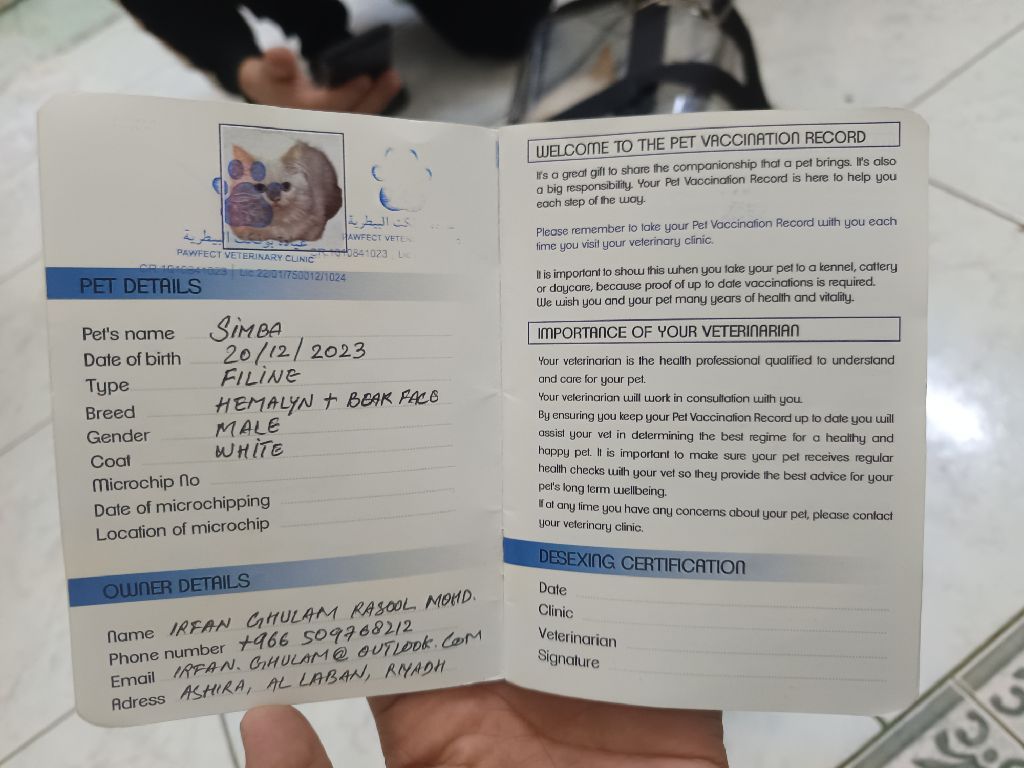 عيادة بوفكت البيطرية
PAWFECT VETERINARY CLINIC
CR.1010841023 | Lic 22/01/750012/1024
كت البيطرية
PAWFECT VETER
CR.1010841023 Lic
PET DETAILS
Pet's name SIMBA
Date of birth 20/12/2023
Type FILINE
Breed HEMALYN + BEAR FACE
Gender MALE
Coat WHITE
Microchip No
Date of microchipping
Location of microchip
OWNER DETAILS
Name IRFAN GHULAM RASOOL MOHD.
Phone number +966 509768212
Email IRFAN.GHULAM@OUTLOOK.COM
Adress ASHIRA, AL LABAN, RIYADH
WELCOME TO THE PET VACCINATION RECORD
It's a great gift to share the companionship that a pet brings. It's also
a big responsibility. Your Pet Vaccination Record is here to help you
each step of the way.
Please remember to take your Pet Vaccination Record with you each
time you visit your veterinary clinic.
It is important to show this when you take your pet to a kennel, cattery
or daycare, because proof of up to date vaccinations is required.
We wish you and your pet many years of health and vitality.
IMPORTANCE OF YOUR VETERINARIAN
Your veterinarian is the health professional qualified to understand
and care for your pet.
Your veterinarian will work in consultation with you.
By ensuring you keep your Pet Vaccination Record up to date you will
assist your vet in determining the best regime for a healthy and
happy pet. It is important to make sure your pet receives regular
health checks with your vet so they provide the best advice for your
pet's long term wellbeing.
If at any time you have any concerns about your pet, please contact
your veterinary clinic.
DESEXING CERTIFICATION
Date
Clinic
Veterinarian
Signature